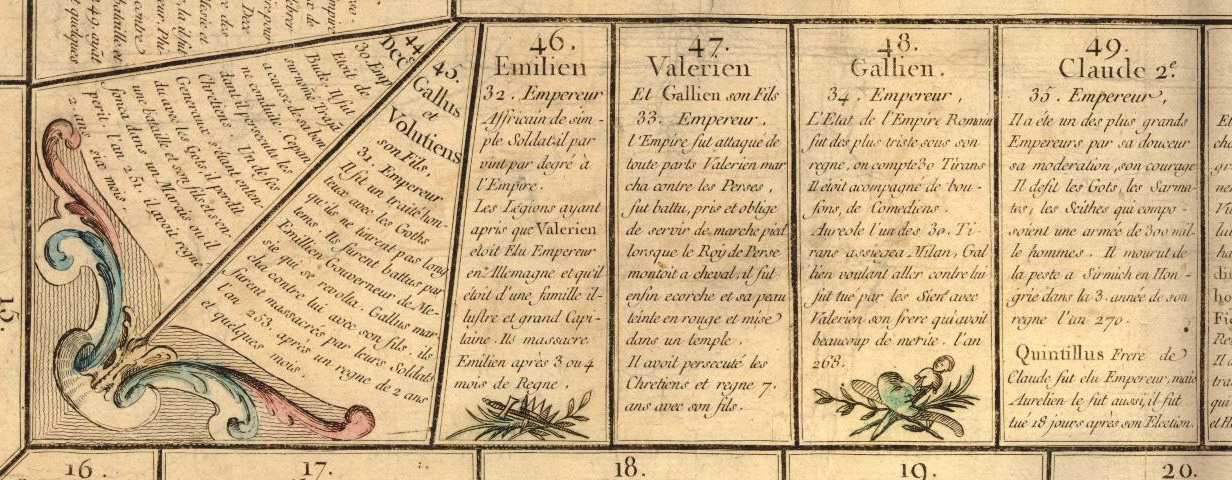 44.
Dece
30. Emp.
Etoit de
Bude. Il fut
surnomé Traja
a cause de sa bon
ne conduite. Cepan
dant il persecuta les
Chretiens. Un de ses
Generaux s'etant enten-
du avec les Gots, il perdit
une bataille et son fils. il s'en-
fonca dans un Marais ou il
perit. l'an 251. il avoit regne
2 ans six mois.
45.
Gallus
et
Volutiens
son Fils.
31. Empereur
Il fit un traité hon-
teux avec les Goths
qu'ils ne tinrent pas long
tems. Ils furent battus par
Emillien Gouverneur de Me-
sie qui se revolta. Gallus mar
cha contre lui avec son fils. ils
furent massacrés par leurs Soldats
l'an 253. après un regne de 2 ans
et quelques mois.
46.
Emilien
32. Empereur
Affricain de sim-
ple Soldat il par
vint par degré à
l'Empire.
Les Legions ayant
apris que Valerien
etoit Elu Empereur
en Allemagne et qu'il
étoit d'une famille il-
lustre et grand Capi-
taine. Ils massacre
Emilien après 3 ou 4
mois de Regne.
47.
Valerien
Et Gallien son Fils
33. Empereur.
l'Empire fut attaqué de
toute parts Valerien mar
cha contre les Perses,
fut battu, pris et oblige
de servir de marche pied
lorsque le Roy de Perse
montoit a cheval, il fut
enfin ecorche et sa peau
teinte en rouge et mise
dans un temple.
Il avoit persecuté les
Chretiens et regne 7.
ans avec son fils.
48.
Gallien.
34. Empereur,
L'Etat de l'Empire Romain
fut des plus triste sous son
regne, on compte 30 Tirans
Il étoit acompagné de bou-
fons, de Comediens.
Aureole l'un des 30. Ti-
rans assiegea Milan, Gal
lien voulant aller contre lui
fut tue par les Siens avec
Valerien son frere qui avoit
beaucoup de merite. l'an
268.
49.
Claude 2e.
35. Empereur,
Il a ete un des plus grands
Empereurs par sa douceur
sa moderation, son courage
Il defit les Gots, les Sarma-
tes, les Scithes qui compo-
soient une armée de 300 mil-
le hommes. Il mourut de
la peste a Sirmich en Hon-
grie dans la 3. année de son
regne l'an 270.
Quintillus Frere de
Claude fut elu Empereur, mais
Aurelien le fut aussi, il fut
tué 18 jours après son Election.
15.
16.
17.
18.
19.
20.